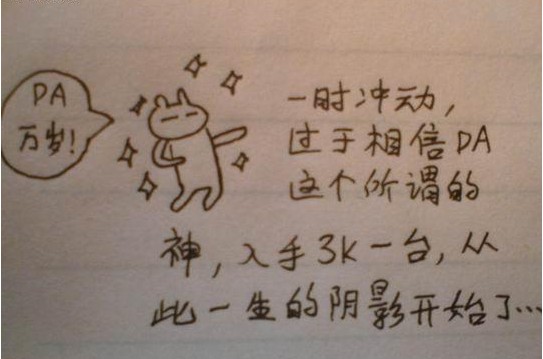 DA
万岁!
一时冲动,
过于相信DA
这个所谓的
神,入手3K一台,从
此一生的阴影开始了…